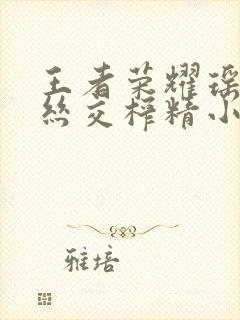 王者荣耀瑶
丝交榨精小
雅培